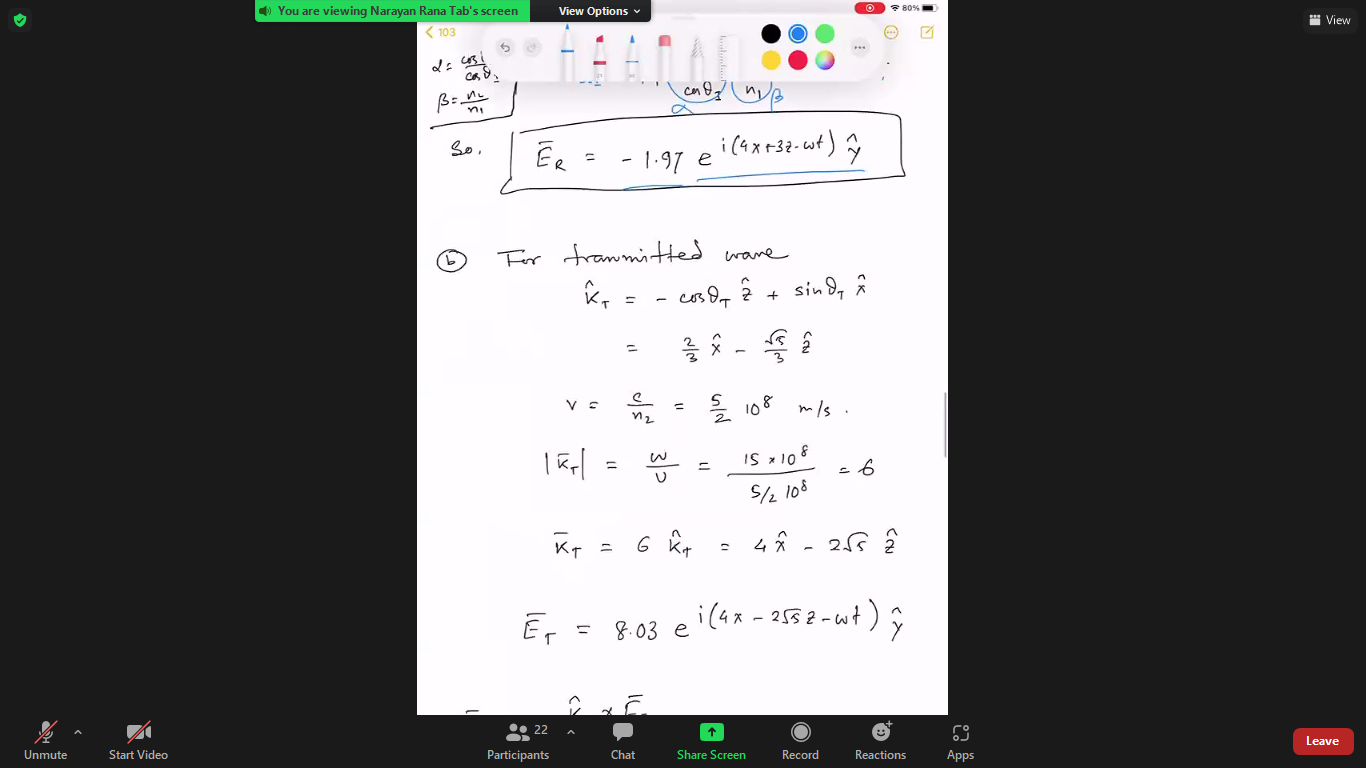 You are viewing Narayan Rana Tab's screen
View Options
80%
View
103
α = cosθ_T / cosθ_I
β = n₂/n₁
cosθ_I n₁
α β
So, Ē_R = - 1.97 e^{i(4x+3z-ωt)} ŷ
ⓑ For transmitted wave
k̂_T = - cosθ_T ẑ + sinθ_T x̂
= 2/3 x̂ - √5/3 ẑ
v = c/n₂ = 5/2 10⁸ m/s.
|k̄_T| = ω/v = 15 × 10⁸ / 5/2 10⁸ = 6
k̄_T = 6 k̂_T = 4x̂ - 2√5 ẑ
Ē_T = 8.03 e^{i(4x - 2√5z - ωt)} ŷ
k̂ × Ē
Unmute
Start Video
Participants
22
Chat
Share Screen
Record
Reactions
Apps
Leave